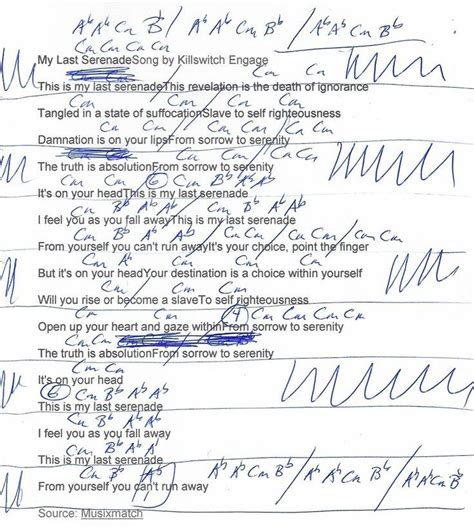 Ab Ab Cm Bb / Ab Ab Cm Bb / Ab Ab Cm Bb
Cm Cm Cm Cm
My Last SerenadeSong by Killswitch Engage
Cm Cm
This is my last serenadeThis revelation is the death of ignorance
Cm Cm Cm Cm
Tangled in a state of suffocationSlave to self righteousness
Cm Cm Cm Cm
Damnation is on your lipsFrom sorrow to serenity
Cm Cm
The truth is absolutionFrom sorrow to serenity
Cm Cm 6 Cm Bb Ab Ab
It's on your headThis is my last serenade
Cm Bb Ab Ab Cm Bb Ab Ab
I feel you as you fall awayThis is my last serenade
Cm Bb Ab Ab / Cm Cm Cm Cm / Cm Cm
From yourself you can't run awayIt's your choice, point the finger
Cm Ab Cm Cm
But it's on your headYour destination is a choice within yourself
Cm Cm
Will you rise or become a slaveTo self righteousness
Cm Cm 4 Cm Cm Cm Cm
Open up your heart and gaze withinFrom sorrow to serenity
The truth is absolutionFrom sorrow to serenity
Cm Cm
It's on your head
6 Cm Bb Ab Ab
This is my last serenade
Cm Bb Ab Ab
I feel you as you fall away
Cm Bb Ab Ab
This is my last serenade
Cm Bb Ab Ab Ab Cm Bb / Ab Ab Cm Bb / Ab Ab Cm Bb
From yourself you can't run away
Source: Musixmatch